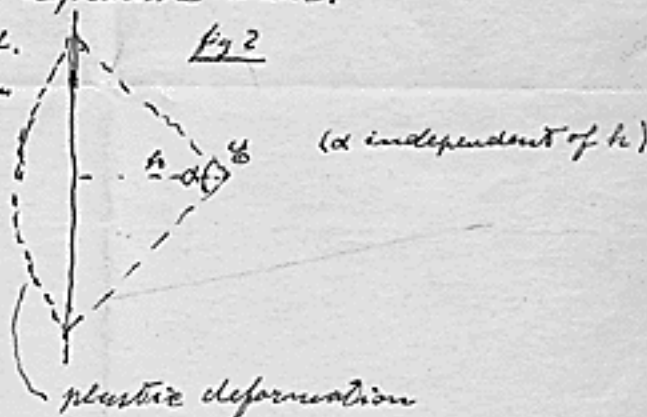 fig 2
(α independent of h)
h α
plastic deformation